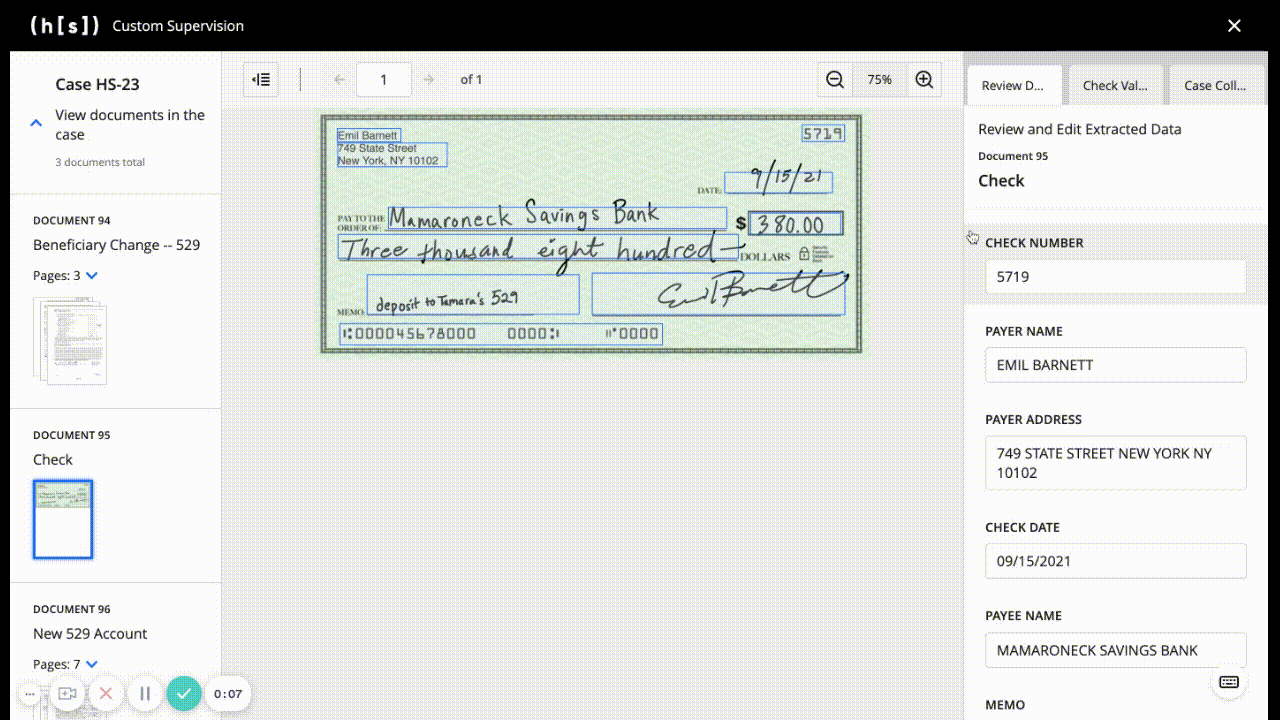 (h[s]) Custom Supervision
Case HS-23
View documents in the
case
3 documents total
DOCUMENT 94
Beneficiary Change -- 529
Pages: 3
DOCUMENT 95
Check
DOCUMENT 96
New 529 Account
Pages: 7
0:07
1 of 1
75%
Emil Barnett
5719
749 State Street
New York, NY 10102
DATE: 9/15/21
PAY TO THE
ORDER OF: Mamaroneck Savings Bank
$ 380.00
Three thousand eight hundred — DOLLARS
Security
Features
Detailed on
Back
MEMO: deposit to Tamara's 529
Emil Barnett
⑆000045678000 0000⑆ ⑈0000
Review D... Check Val... Case Coll...
Review and Edit Extracted Data
Document 95
Check
CHECK NUMBER
5719
PAYER NAME
EMIL BARNETT
PAYER ADDRESS
749 STATE STREET NEW YORK NY
10102
CHECK DATE
09/15/2021
PAYEE NAME
MAMARONECK SAVINGS BANK
MEMO